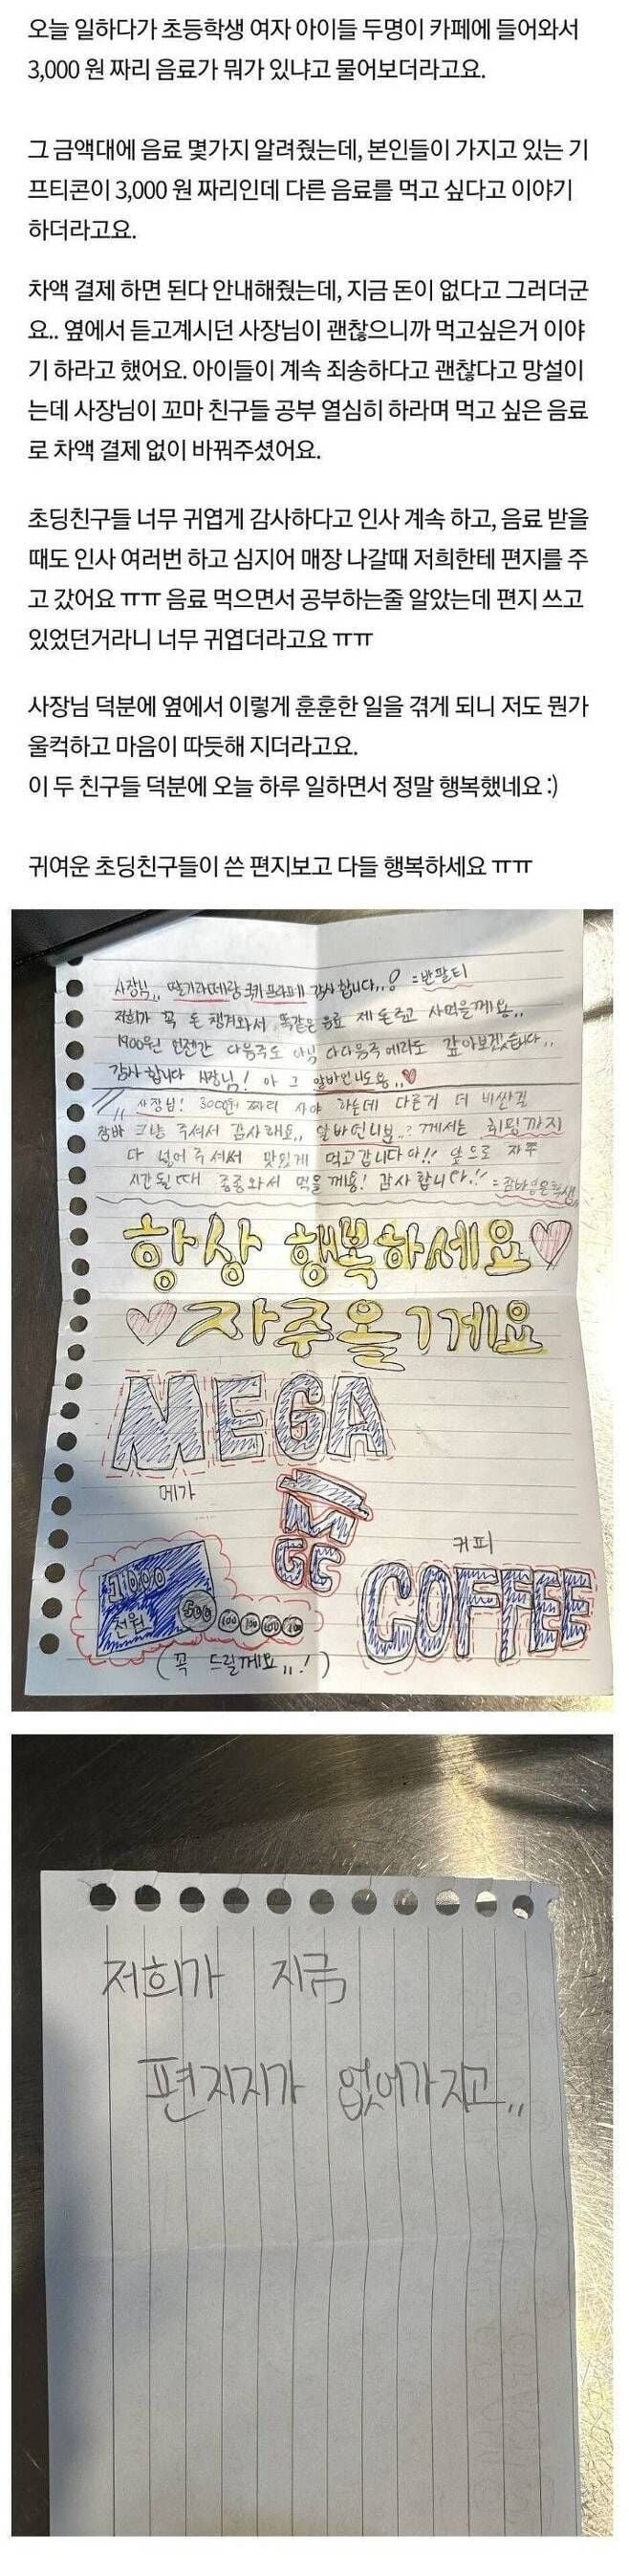 오늘 일하다가 초등학생 여자 아이들 두명이 카페에 들어와서
3,000 원 짜리 음료가 뭐가 있냐고 물어보더라고요.
그 금액대에 음료 몇가지 알려줬는데, 본인들이 가지고 있는 기
프티콘이 3,000 원 짜리인데 다른 음료를 먹고 싶다고 이야기
하더라고요.
차액 결제 하면 된다 안내해줬는데, 지금 돈이 없다고 그러더군
요.. 옆에서 듣고계시던 사장님이 괜찮으니까 먹고싶은거 이야
기 하라고 했어요. 아이들이 계속 죄송하다고 괜찮다고 망설이
는데 사장님이 꼬마 친구들 공부 열심히 하라며 먹고 싶은 음료
로 차액 결제 없이 바꿔주셨어요.
초딩친구들 너무 귀엽게 감사하다고 인사 계속 하고, 음료 받을
때도 인사 여러번 하고 심지어 매장 나갈때 저희한테 편지를 주
고 갔어요 ㅠㅠ 음료 먹으면서 공부하는줄 알았는데 편지 쓰고
있었던거라니 너무 귀엽더라고요 ㅠㅠ
사장님 덕분에 옆에서 이렇게 훈훈한 일을 겪게 되니 저도 뭔가
울컥하고 마음이 따듯해 지더라고요.
이 두 친구들 덕분에 오늘 하루 일하면서 정말 행복했네요 :)
귀여운 초딩친구들이 쓴 편지보고 다들 행복하세요 ㅠㅠ
사장님,, 딸기라떼랑 쿠키프라페 감사합니다,,! =반팔티
저희가 꼭 돈 챙겨와서 똑같은 음료 제 돈주고 사먹을께요,,
1900원 언젠간 다음주도 아님 다다음주에라도 갚아보겠습니다,,
감사합니다 사장님! 아 그 알바언니도용,,♥
사장님! 3000원 짜리 사야 하는데 다른거 더 비싼걸
그냥 주셔서 감사해요,, 알바언니분..? 께서는 휘핑까지
다 넣어주셔서 맛있게 먹고갑니다아!! 앞으로 자주
시간될때 종종와서 먹을께용! 감사합니다!!
항상 행복하세요♡
♡자주올게요
MEGA
메가
MGC
커피
COFFEE
1000
천원
500
100
(꼭 드릴께요,,!)
저희가 지금
편지지가 없어가지고,,